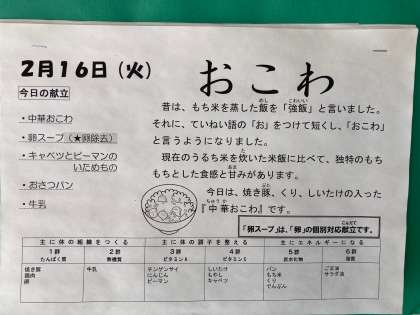 2月16日（火）
おこわ
今日の献立
・中華おこわ
・卵スープ（★卵除去）
・キャベツとピーマンの
いためもの
・おさつパン
・牛乳
昔は、もち米を蒸した飯を「強飯」と言いました。
それに、ていねい語の「お」をつけて短くし、「おこわ」
と言うようになりました。
現在のうるち米を炊いた米飯に比べて、独特のもち
もちとした食感と甘みがあります。
今日は、焼き豚、くり、しいたけの入った
『中華おこわ』です。
「卵スープ」は、「卵」の個別対応献立です。
主に体の組織をつくる 主に体の調子を整える 主にエネルギーになる
1群 2群 3群 4群 5群 6群
たんぱく質 無機質 ビタミンA ビタミンC 炭水化物 脂質
焼き豚 牛乳 チンゲンサイ しいたけ パン ごま油
鶏肉 にんじん もち米 サラダ油
卵 ピーマン キャベツ くり
でんぷん